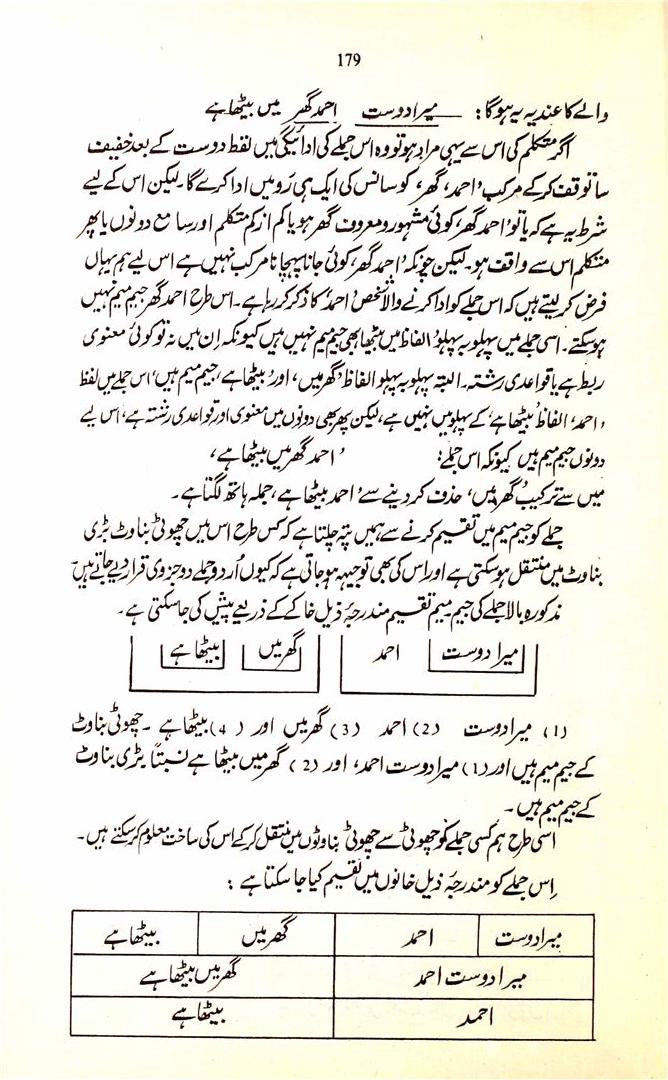 179
والے کا عندیہ یہ ہوگا: ــــ میرا دوست احمد گھر میں بیٹھا ہے
اگر متکلم کی اس سے یہی مراد ہو تو وہ اس جملے کی ادائیگی میں لفظ دوست کے بعد خفیف
سا توقف کرکے مرکب ’احمد، گھر، کو سانس کی ایک ہی رَو میں ادا کرے گا۔ لیکن اس کے لیے
شرط یہ ہے کہ یا تو ’احمد گھر، کوئی مشہور و معروف گھر ہو یا کم از کم متکلم اور سامع دونوں یا پھر
متکلم اس سے واقف ہو۔ لیکن چونکہ ’احمد گھر، کوئی جانا پہچانا مرکب نہیں ہے اس لیے ہم یہاں
فرض کر لیتے ہیں کہ اس جملے کو ادا کرنے والا شخص ’احمد‘ کا ذکر کر رہا ہے۔ اس طرح احمد گھر جیم میم نہیں
ہوسکتے۔ اسی جملے میں پہلو بہ پہلو ’الفاظ میں بیٹھا‘ بھی جیم میم نہیں ہیں کیونکہ اِن میں نہ تو کوئی معنوی
ربط ہے یا قواعدی رشتہ۔ البتہ پہلو بہ پہلو الفاظ ’گھر میں، اور ’بیٹھا ہے، جیم میم ہیں‘ اس جملے میں لفظ
’احمد، الفاظ ’بیٹھا ہے‘ کے پہلو میں نہیں ہے، لیکن پھر بھی دونوں میں معنوی اور قواعدی رشتہ ہے، اس لیے
دونوں جیم میم ہیں کیونکہ اس جملے: ’احمد گھر میں بیٹھا ہے،
میں سے ترکیب ’گھر میں‘ حذف کر دینے سے ’احمد بیٹھا ہے، جملہ ہاتھ لگتا ہے۔
جملے کو جیم میم میں تقسیم کرنے سے ہمیں پتہ چلتا ہے کہ کس طرح اس میں چھوٹی بناوٹ بڑی
بناوٹ میں منتقل ہوسکتی ہے اور اس کی بھی توجیہہ ہو جاتی ہے کہ کیوں اُردو جملے دو جزوی قرار دیے جاتے ہیں
مذکورہ بالا جملے کی جیم میم تقسیم مندرجۂ ذیل خاکے کے ذریعے پیش کی جاسکتی ہے۔
میرا دوست احمد گھر میں بیٹھا ہے
(1) میرا دوست (2) احمد (3) گھر میں اور (4) بیٹھا ہے ۔ چھوٹی بناوٹ
کے جیم میم ہیں اور (1) میرا دوست احمد، اور (2) گھر میں بیٹھا ہے نسبتاً بڑی بناوٹ
کے جیم میم ہیں۔
اسی طرح ہم کسی جملے کو چھوٹی سے چھوٹی بناوٹوں میں منتقل کرکے اس کی ساخت معلوم کرسکتے ہیں۔
اِس جملے کو مندرجۂ ذیل خانوں میں تقسیم کیا جا سکتا ہے :
میرا دوست احمد گھر میں بیٹھا ہے
میرا دوست احمد گھر میں بیٹھا ہے
احمد بیٹھا ہے